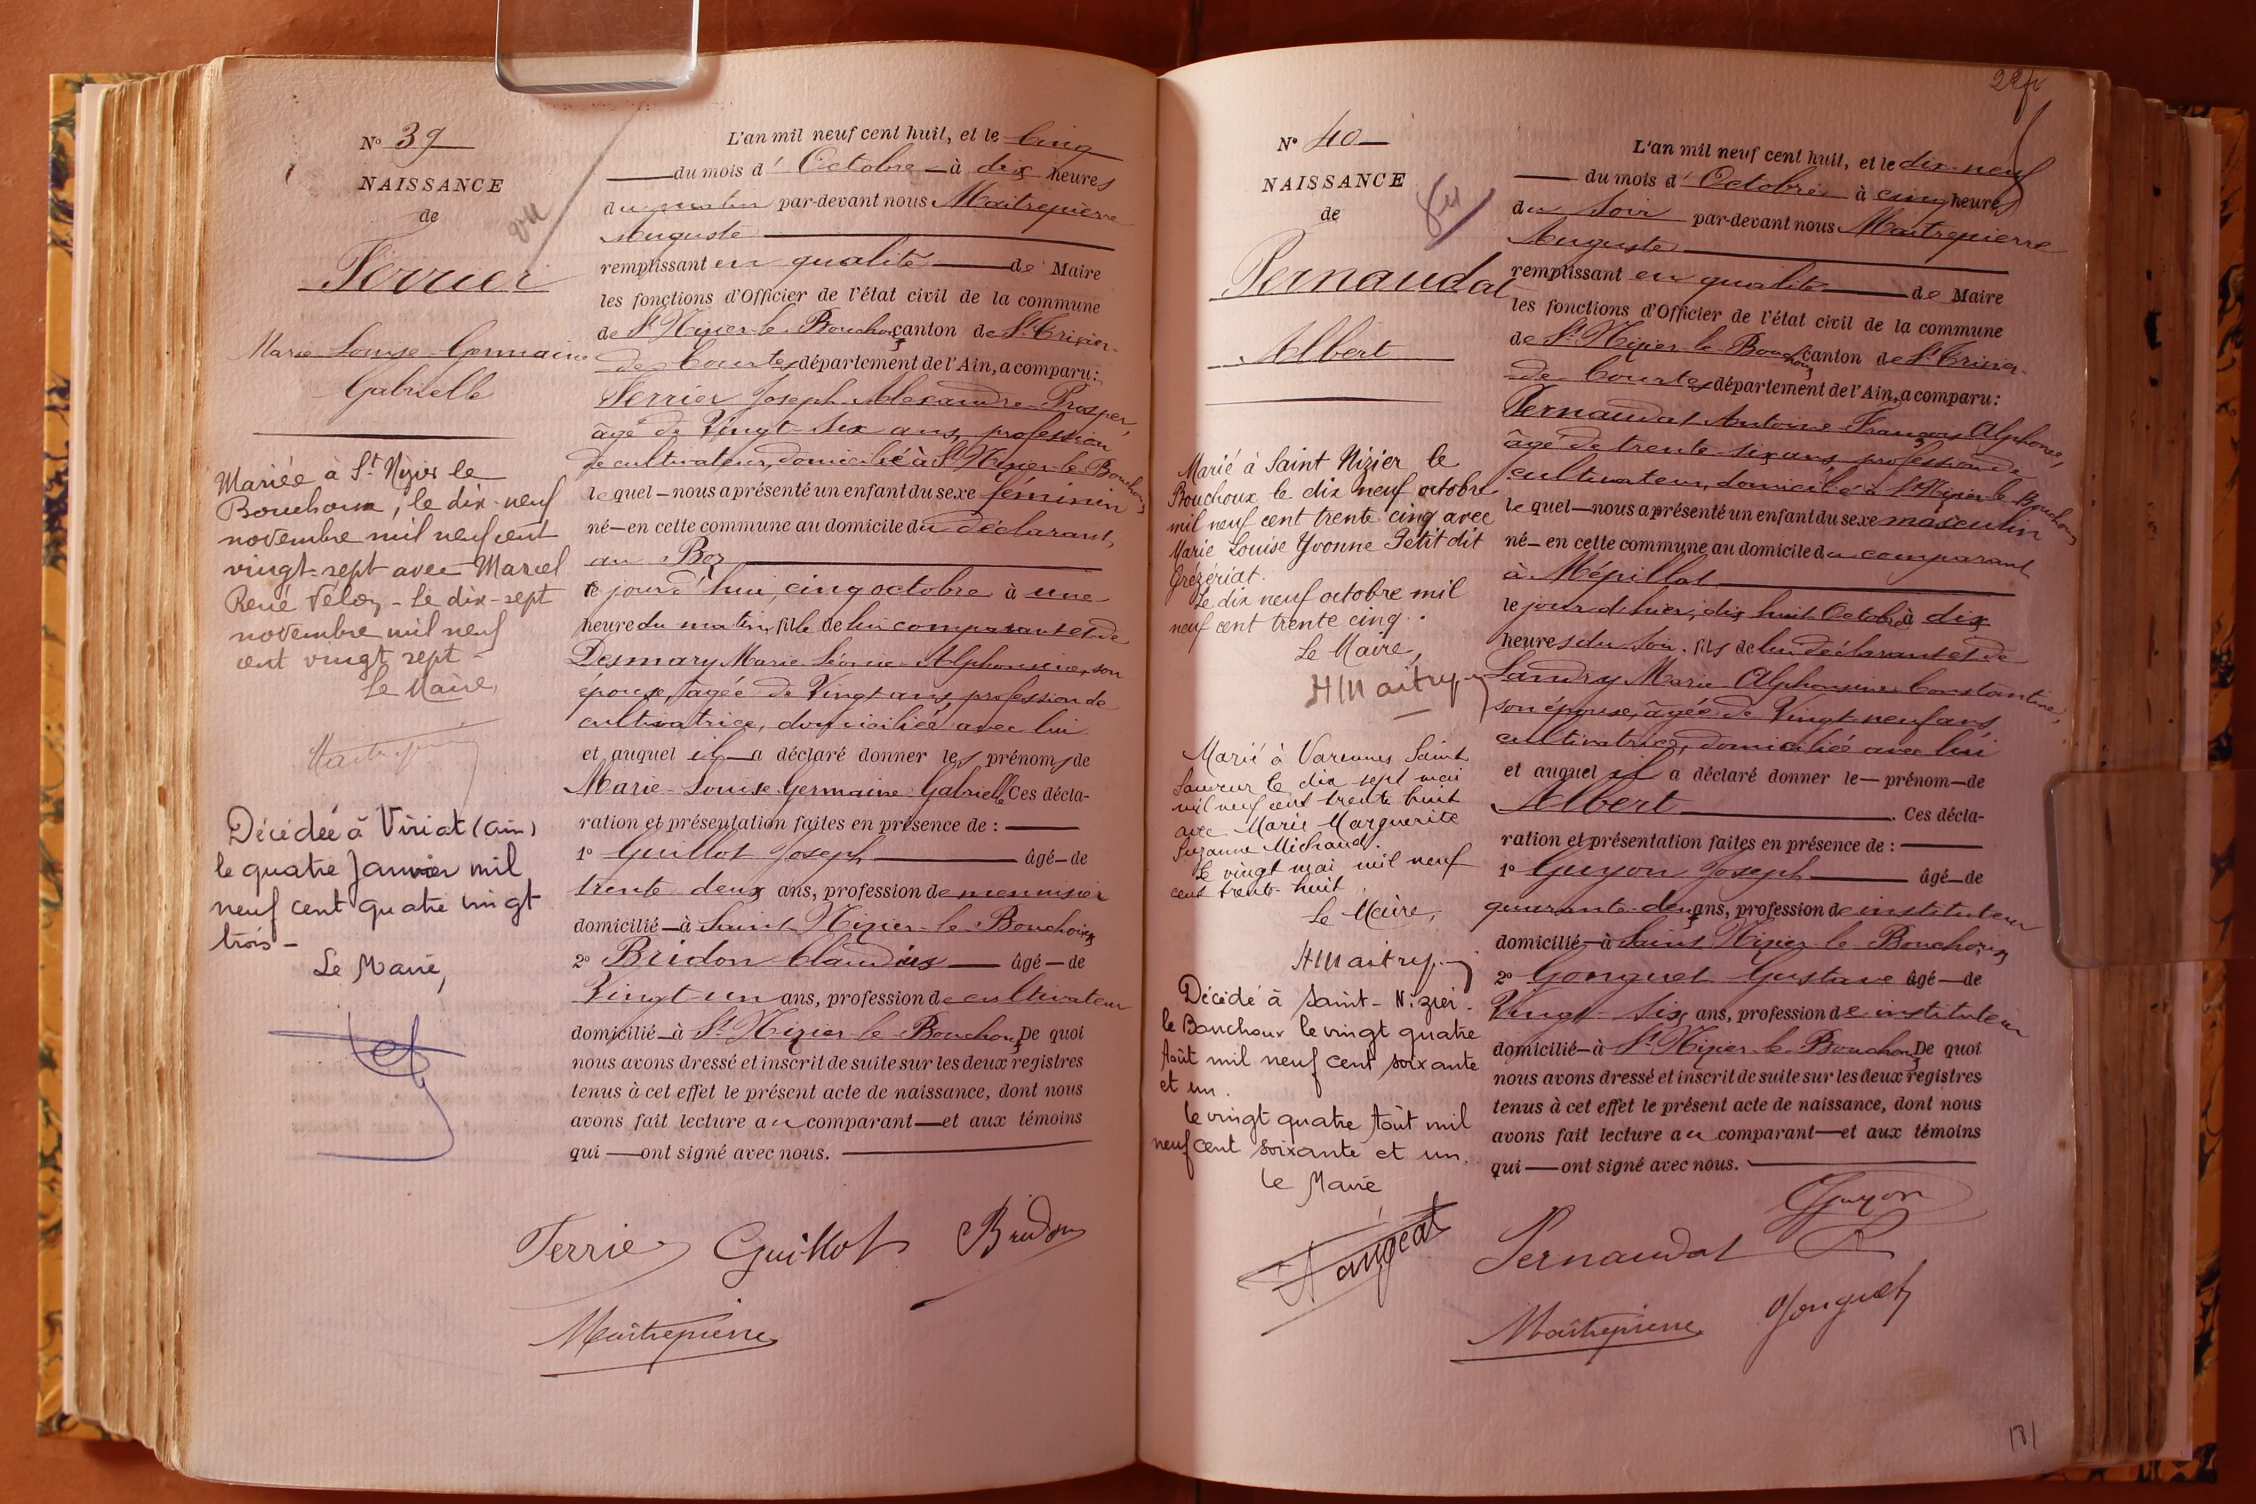 N° 39
NAISSANCE
de
Ferrier
Marie Louise Germaine
Gabrielle
Mariée à St Nizier le
Bouchoux, le dix-neuf
novembre mil neuf cent
vingt-sept avec Marcel
René Velon - Le dix-sept
novembre mil neuf
cent vingt sept -
Le Maire,
Décédée à Viriat (Ain)
le quatre Janvier mil
neuf cent quatre vingt
trois -
Le Maire,
vu
L'an mil neuf cent huit, et le Cinq
du mois d' Octobre à dix heures
du matin par-devant nous Maitrepierre
Auguste
remplissant en qualité de Maire
les fonctions d'Officier de l'état civil de la commune
de St Nizier le Bouchoux canton de St Trivier-
de Courtes département de l'Ain, a comparu:
Ferrier Joseph Alexandre Prosper,
âgé de Vingt-six ans, profession
de cultivateur, domicilié à St Nizier-le-Bouchoux
le quel - nous a présenté un enfant du sexe féminin
né - en cette commune au domicile du déclarant,
au Boz
ce jourd'hui, cinq octobre à une
heure du matin, fille de lui comparant et de
Desmary Marie Léonie Alphonsine, son
épouse, âgée de Vingt ans, profession de
cultivatrice, domiciliée avec lui
et auquel il a déclaré donner les prénoms de
Marie-Louise-Germaine Gabrielle Ces décla-
ration et présentation faites en présence de :
1° Guillot Joseph âgé - de
trente deux ans, profession de menuisier
domicilié - à Saint Nizier-le-Bouchoux
2° Bridon Claudius âgé - de
Vingt-un ans, profession de cultivateur
domicilié - à St Nizier-le-Bouchoux De quoi
nous avons dressé et inscrit de suite sur les deux registres
tenus à cet effet le présent acte de naissance, dont nous
avons fait lecture au comparant - et aux témoins
qui - ont signé avec nous.
Ferrier Guillot Bridon
Maitrepierre
N° 40
NAISSANCE
de
Pernaudat
Albert
Marié à Saint Nizier le
Bouchoux le dix neuf octobre
mil neuf cent trente cinq avec
Marie Louise Yvonne Petit dit
Grézériat.
Le dix neuf octobre mil
neuf cent trente cinq.
Le Maire,
H Maitrep
Marié à Varennes Saint
Sauveur le dix sept mai
mil neuf cent trente huit
avec Marie Marguerite
Suzanne Michaud.
Le vingt mai mil neuf
cent trente-huit
Le Maire,
H Maitrep
Décédé à Saint-Nizier-
le Bouchoux le vingt quatre
Août mil neuf cent soixante
et un.
le vingt quatre Août mil
neuf cent soixante et un.
le Maire
L'an mil neuf cent huit, et le dix-neuf
du mois d' Octobre à cinq heures
du Soir par-devant nous Maitrepierre
Auguste
remplissant en qualité de Maire
les fonctions d'Officier de l'état civil de la commune
de St Nizier-le-Bouchoux canton de St Trivier-
de Courtes département de l'Ain, a comparu:
Pernaudat Antoine François Alphonse,
âgé de trente-six ans, profession de
cultivateur, domicilié à St Nizier-le-Bouchoux
le quel - nous a présenté un enfant du sexe masculin
né - en cette commune au domicile du comparant
à Mépillat
le jour de hier, dix huit Octobre à dix
heures du Soir, fils de lui déclarant et de
Landry Marie Alphonsine Constantine,
son épouse, âgée de Vingt neuf ans,
cultivatrice, domiciliée avec lui
et auquel il a déclaré donner le - prénom - de
Albert Ces décla-
ration et présentation faites en présence de :
1° Guyon Joseph âgé - de
quarante-deux ans, profession de instituteur
domicilié - à Saint Nizier le Bouchoux
2° Gonguet Gustave âgé - de
Vingt-six ans, profession de instituteur
domicilié - à St Nizier-le-Bouchoux De quoi
nous avons dressé et inscrit de suite sur les deux registres
tenus à cet effet le présent acte de naissance, dont nous
avons fait lecture au comparant - et aux témoins
qui - ont signé avec nous.
Guyon
Pernaudat
Maitrepierre Gonguet